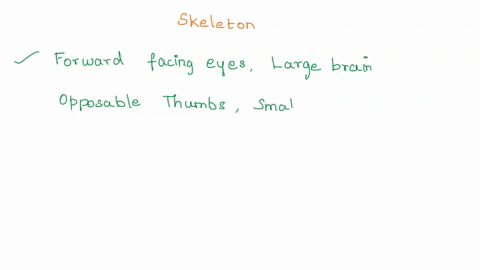 Skeleton
Forward facing eyes, Large brain
Opposable Thumbs, Smal